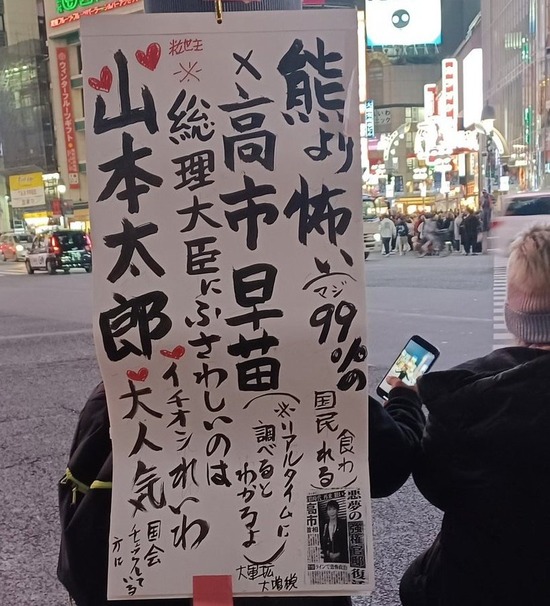 熊より怖い
(マジ)
99%の
国民(食われる)
×高市早苗
(※リアルタイムに
調べると
わかるよ)
大軍拡
大増税
救世主
※
総理大臣にふさわしいのは
♥イチオシれいわ
♥山本太郎♥
♥大人気
国会
悪夢の
高市
ウィンターフルーツギフト